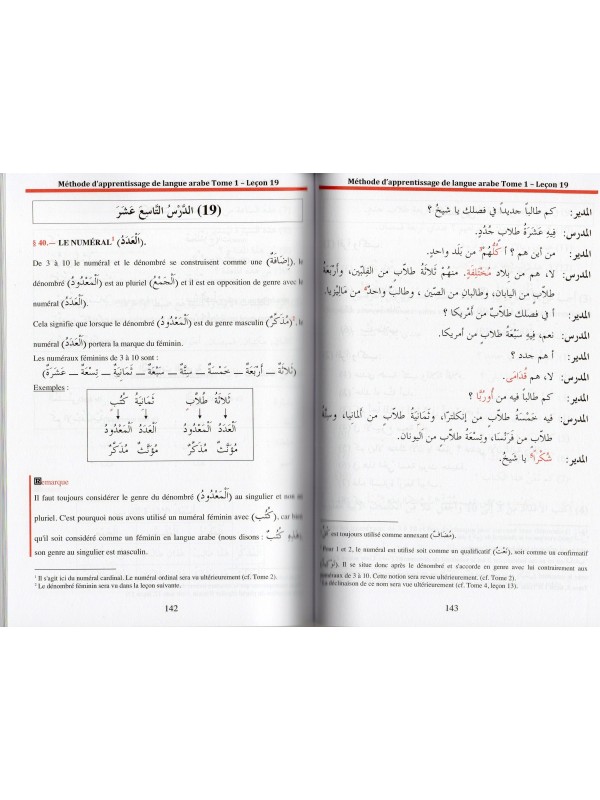 Méthode d'apprentissage de langue arabe Tome 1 – Leçon 19
(19) الدَّرْسُ التَّاسِعَ عَشَرَ
§ 40.— LE NUMÉRAL¹ (اَلْعَدَدُ).
De 3 à 10 le numéral et le dénombré se construisent comme une (إِضَافَةٌ), le
dénombré (اَلْمَعْدُودُ) est au pluriel (اَلْجَمْعُ) et il est en opposition de genre avec le
numéral (اَلْعَدَدُ).
Cela signifie que lorsque le dénombré (اَلْمَعْدُودُ) est du genre masculin (مُذَكَّرٌ)², le
numéral (اَلْعَدَدُ) portera la marque du féminin.
Les numéraux féminins de 3 à 10 sont :
(ثَلَاثَةٌ ــ أَرْبَعَةٌ ــ خَمْسَةٌ ــ سِتَّةٌ ــ ثَمَانِيَةٌ ــ تِسْعَةٌ ــ عَشَرَةٌ)
Exemples :
ثَلَاثَةُ طُلَّابٍ ثَمَانِيَةُ كُتُبٍ
اَلْعَدَدُ اَلْمَعْدُودُ اَلْعَدَدُ اَلْمَعْدُودُ
مُؤَنَّثٌ مُذَكَّرٌ مُؤَنَّثٌ مُذَكَّرٌ
Remarque
Il faut toujours considérer le genre du dénombré (اَلْمَعْدُودُ) au singulier et non au
pluriel. C'est pourquoi nous avons utilisé un numéral féminin avec (كُتُب), car bien
qu'il soit considéré comme un féminin en langue arabe (nous disons : هَذِهِ كُتُبٌ)
son genre au singulier est masculin.
¹ Il s'agit ici du numéral cardinal. Le numéral ordinal sera vu ultérieurement (cf. Tome 2).
² Le dénombré féminin sera vu dans la leçon suivante.
142
Méthode d'apprentissage de langue arabe Tome 1 – Leçon 19
المدير: كم طالباً جديداً في فصلك يا شيخُ ؟
المدرس: فِيهِ عَشَرَةُ طلابٍ جُدُدٍ.
المدير: من أين هم ؟ أ كُلُّهُمْ³ من بَلَد واحدٍ.
المدرس: لا، هم من بلاد مُخْتَلِفَةٍ. مِنهُمْ ثَلَاثَةُ طلّاب من الفِلِبّين، وأَرْبَعَةُ
طلّاب من اليابان، وطالبان من الصّين ، وطالبٌ واحدٌ⁴ من مَالِيزيا.
المدير: أ في فصلك طلّابٌ من أَمْرِيكا ؟
المدرس: نعم، فِيهِ سَبْعَةُ طلابٍ من أمريكا.
المدير: أ هم جدد ؟
المدرس: لا، هم قُدَامَى.
المدير: كم طالبا فيه من أُورُبَّا ؟
المدرس: فيه خَمْسَةُ طلّاب من إنكلترا، وثَمَانِيَةُ طلّاب من ألمانيا، وستّةُ
طلّاب من فَرَنْسَا، وتِسْعَةُ طلّاب من اليونان.
المدير: شُكْراً يا شَيخُ.
est toujours utilisé comme annexant (مُضَافٌ).
Pour 1 et 2, le numéral est utilisé soit comme un qualificatif (نَعْتٌ), soit comme un confirmatif
(تَوْكِيدٌ). Il se situe donc après le dénombré et s'accorde en genre avec lui contrairement aux
numéraux de 3 à 10. Cette notion sera revue ultérieurement. (cf. Tome 2).
La déclinaison de ce nom sera vue ultérieurement (cf. Tome 4, leçon 13).
143